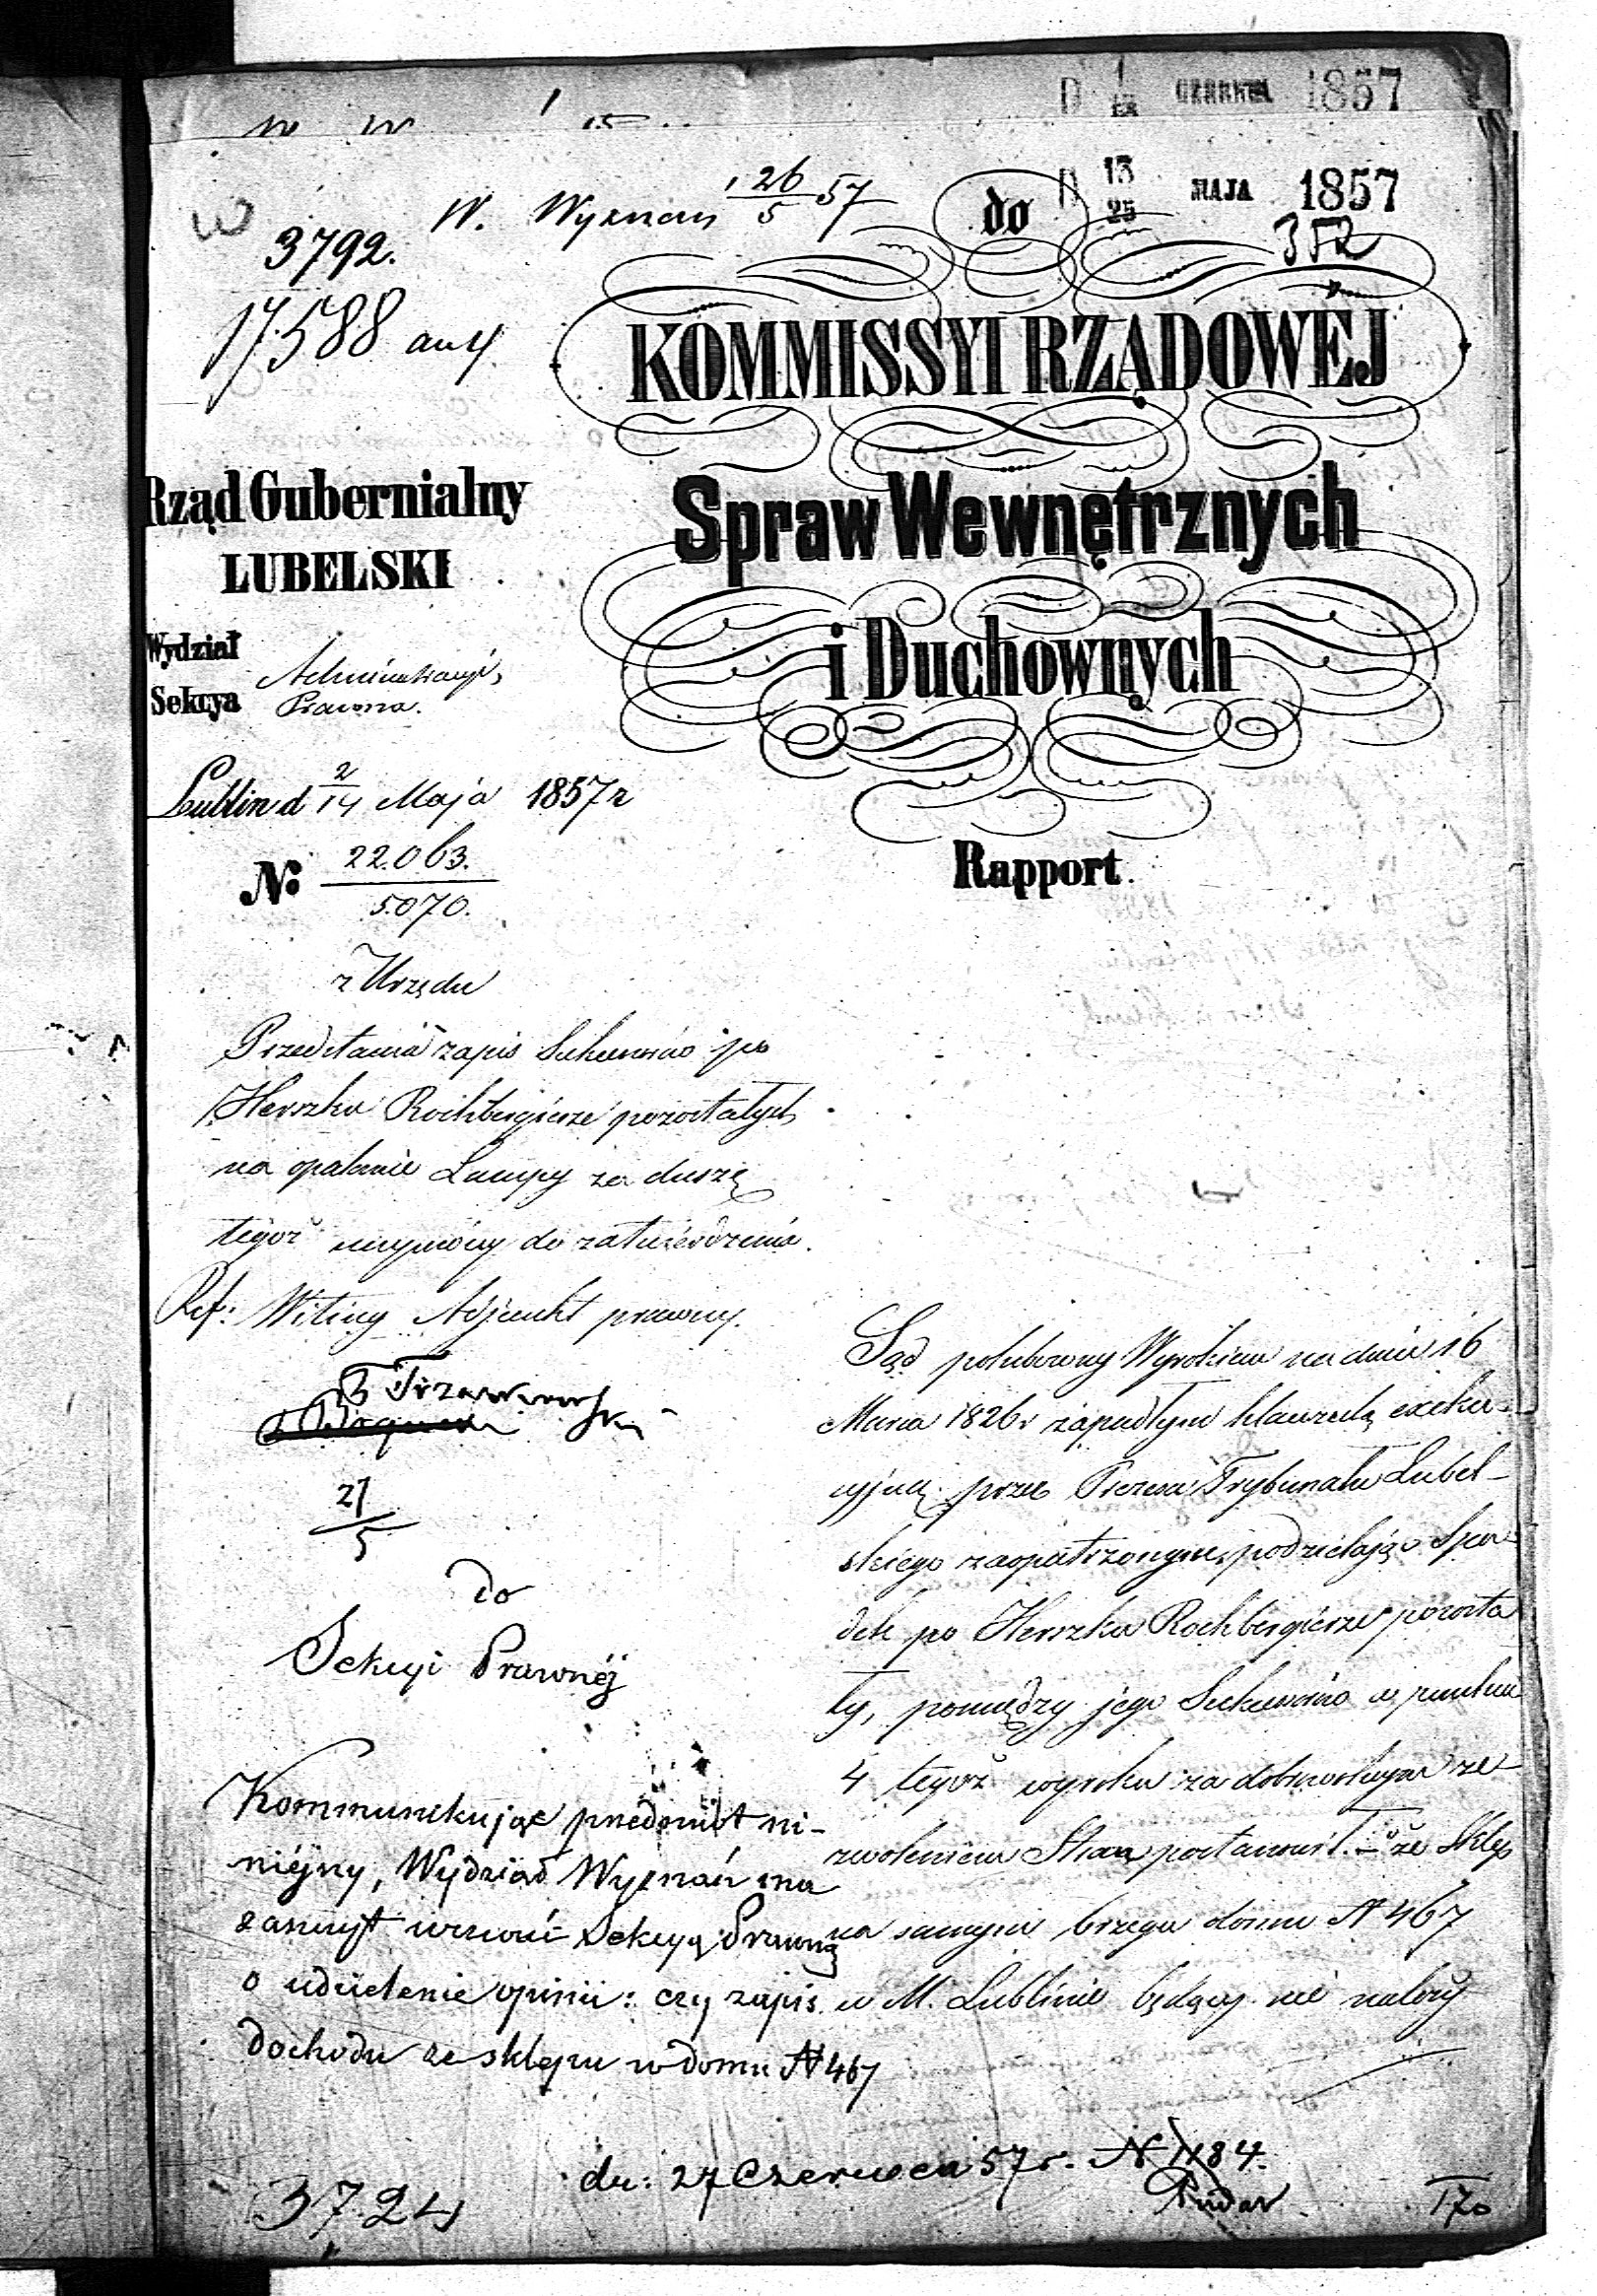 D 1/13 CZERWCA 1857
W. Wyznań 26/5 57
do
D 13/25 MAJA 1857
352
3792.
17.588
KOMMISSYI RZĄDOWÉJ
Spraw Wewnętrznych
i Duchownych
Rapport.
Rząd Gubernialny
LUBELSKI
Wydział Administracyi,
Sekcya Prawna.
Lublin d 2/14 Maja 1857 r
No 22.063.
5.070.
z Urzędu
Przedstawia zapis Sukcessorów po
Herszku Rochbergierze pozostałych
na opalanie Lampy za duszę
tegoż uczyniony do zatwierdzenia.
Ref: Witing Adjunkt prawny.
27/5
do
Sekcyi Prawnéj
Kommunikując przedmiot ni-
niéjszy, Wydział Wyznań ma
zaszczyt wezwać Sekcyą Prawną
o udzielenie opinii: czy zapis
dochodu ze sklepu w domu N 467
Sąd polubowny Wyrokiem na dniu 16
Marca 1826 r zapadłym klauzulą exeku-
cyjną przez Prezesa Trybunału Lubel-
skiego zaopatrzonym, podzielając Spa-
dek po Herszku Rochbergierze pozosta
ły, pomiędzy jego Sukcessorów w punkcie
4 tegoż wyroku za dobrowolnym ze-
zwoleniem Stron postanowił. – że Sklep
na samym brzegu domu N 467
w M. Lublinie będący nie należy
dn: 27 Czerwca 57 r. N 1184.
3724
170